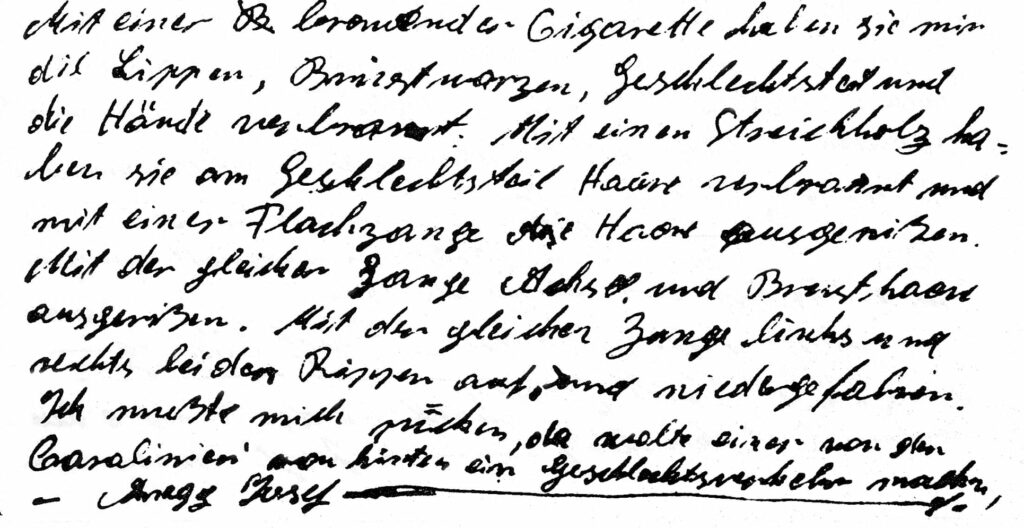 Mit einer brennenden Cigarette haben sie mir
die Lippen, Brustwarzen, Geschlechtsteil und
die Hände verbrannt. Mit einen Streichholz ha=
ben sie am Geschlechtsteil Haare verbrannt und
mit einer Flachzange die Haare ausgerißen.
Mit der gleichen Zange Achsel und Brusthaare
ausgerißen. Mit der gleichen Zange links und
rechts bei den Rippen auf und niedergefahren.
Ich mußte mich bücken, da wolte einer von den
Caralinieri von hinten ein Geschlechtsverkehr machen,
- Anegg Josef